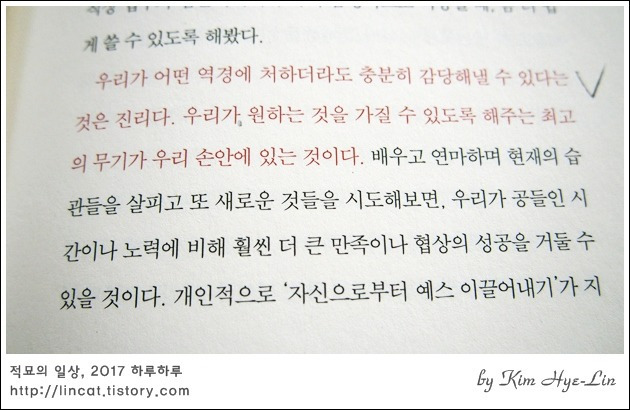 게 쓸 수 있도록 해봤다.
우리가 어떤 역경에 처하더라도 충분히 감당해낼 수 있다는
것은 진리다. 우리가 원하는 것을 가질 수 있도록 해주는 최고
의 무기가 우리 손안에 있는 것이다. 배우고 연마하며 현재의 습
관들을 살피고 또 새로운 것들을 시도해보면, 우리가 공들인 시
간이나 노력에 비해 훨씬 더 큰 만족이나 협상의 성공을 거둘 수
있을 것이다. 개인적으로 ‘자신으로부터 예스 이끌어내기’가 지
적묘의 일상, 2017 하루하루
http://lincat.tistory.com
by Kim Hye-Lin